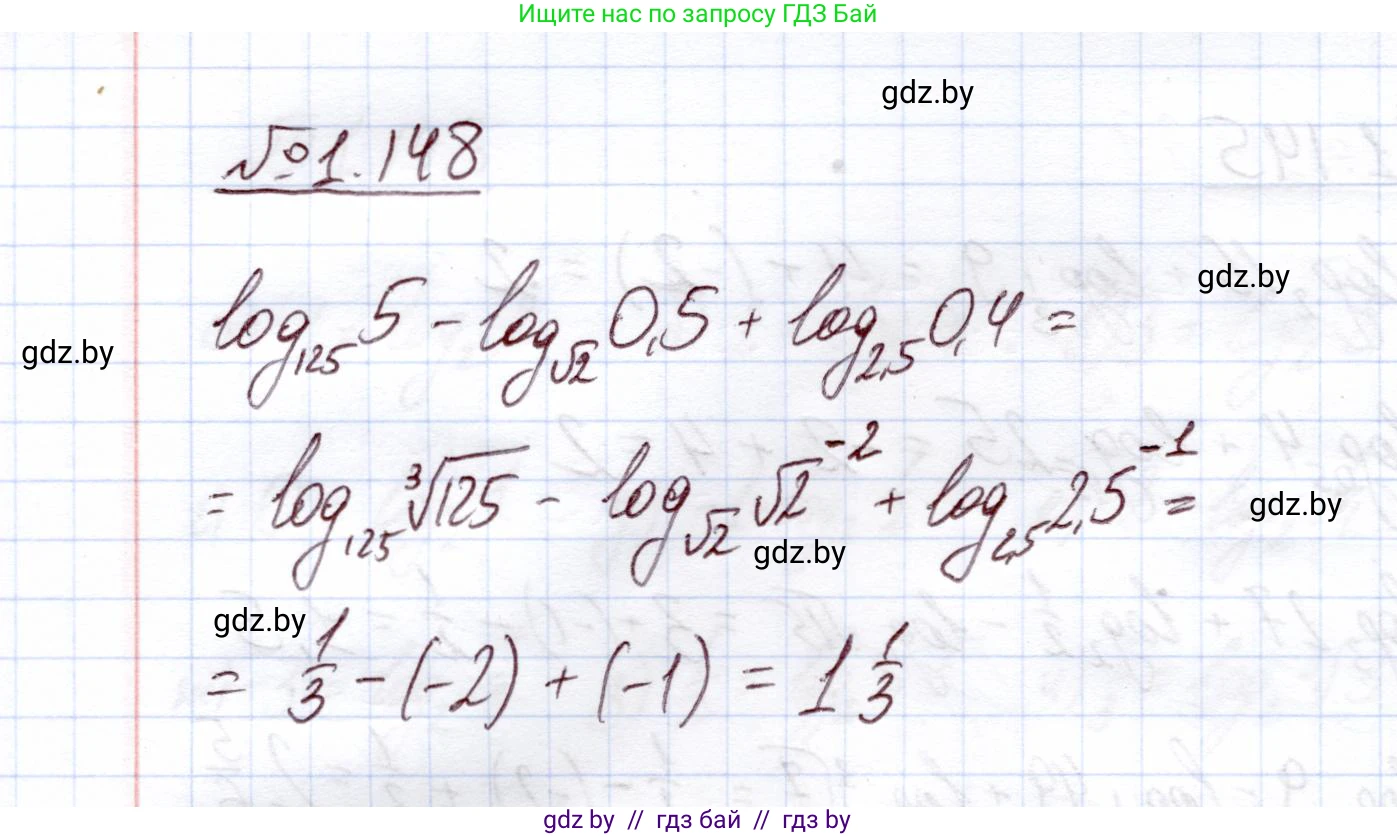 Ищите нас по запросу ГДЗ Бай
gdz.by
№1.148
gdz.by
log₁₂₅ 5 - log_√2 0,5 + log_2,5 0,4 =
gdz.by
= log₁₂₅ ³√125 - log_√2 √2⁻² + log_2,5 2,5⁻¹ =
gdz.by
gdz.by
gdz.by
= 1/3 - (-2) + (-1) = 1 1/3
gdz by // гдз бай // гдз by